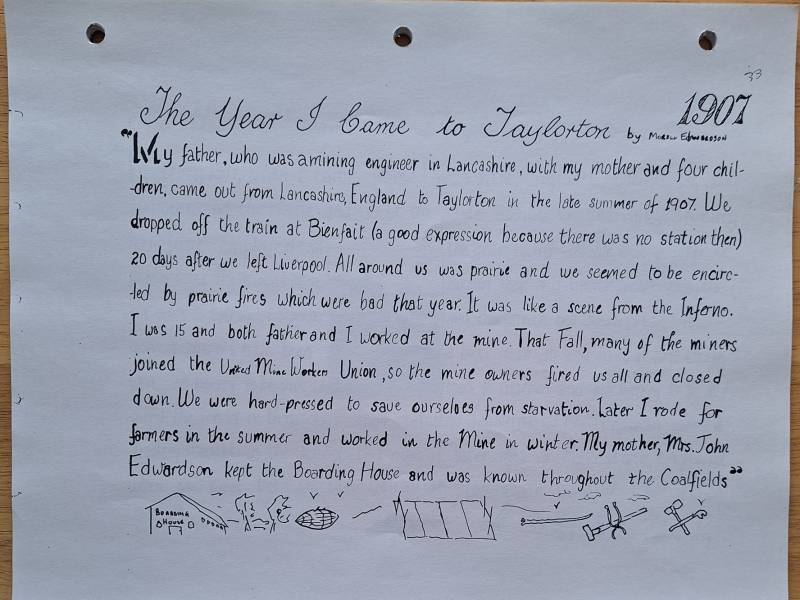 33
The Year I Came to Taylorton by Edwardson 1907
"My father, who was a mining engineer in Lancashire, with my mother and four chil-
-dren, came out from Lancashire, England to Taylorton in the late summer of 1907. We
dropped off the train at Bienfait (a good expression because there was no station then)
20 days after we left Liverpool. All around us was prairie and we seemed to be encirc-
-led by prairie fires which were bad that year. It was like a scene from the Inferno.
I was 15 and both father and I worked at the mine. That Fall, many of the miners
joined the United Mine Workers Union, so the mine owners fired us all and closed
down. We were hard-pressed to save ourselves from starvation. Later I rode for
farmers in the summer and worked in the Mine in winter. My mother, Mrs. John
Edwardson kept the Boarding House and was known throughout the Coalfields"
BOARDING
HOUSE